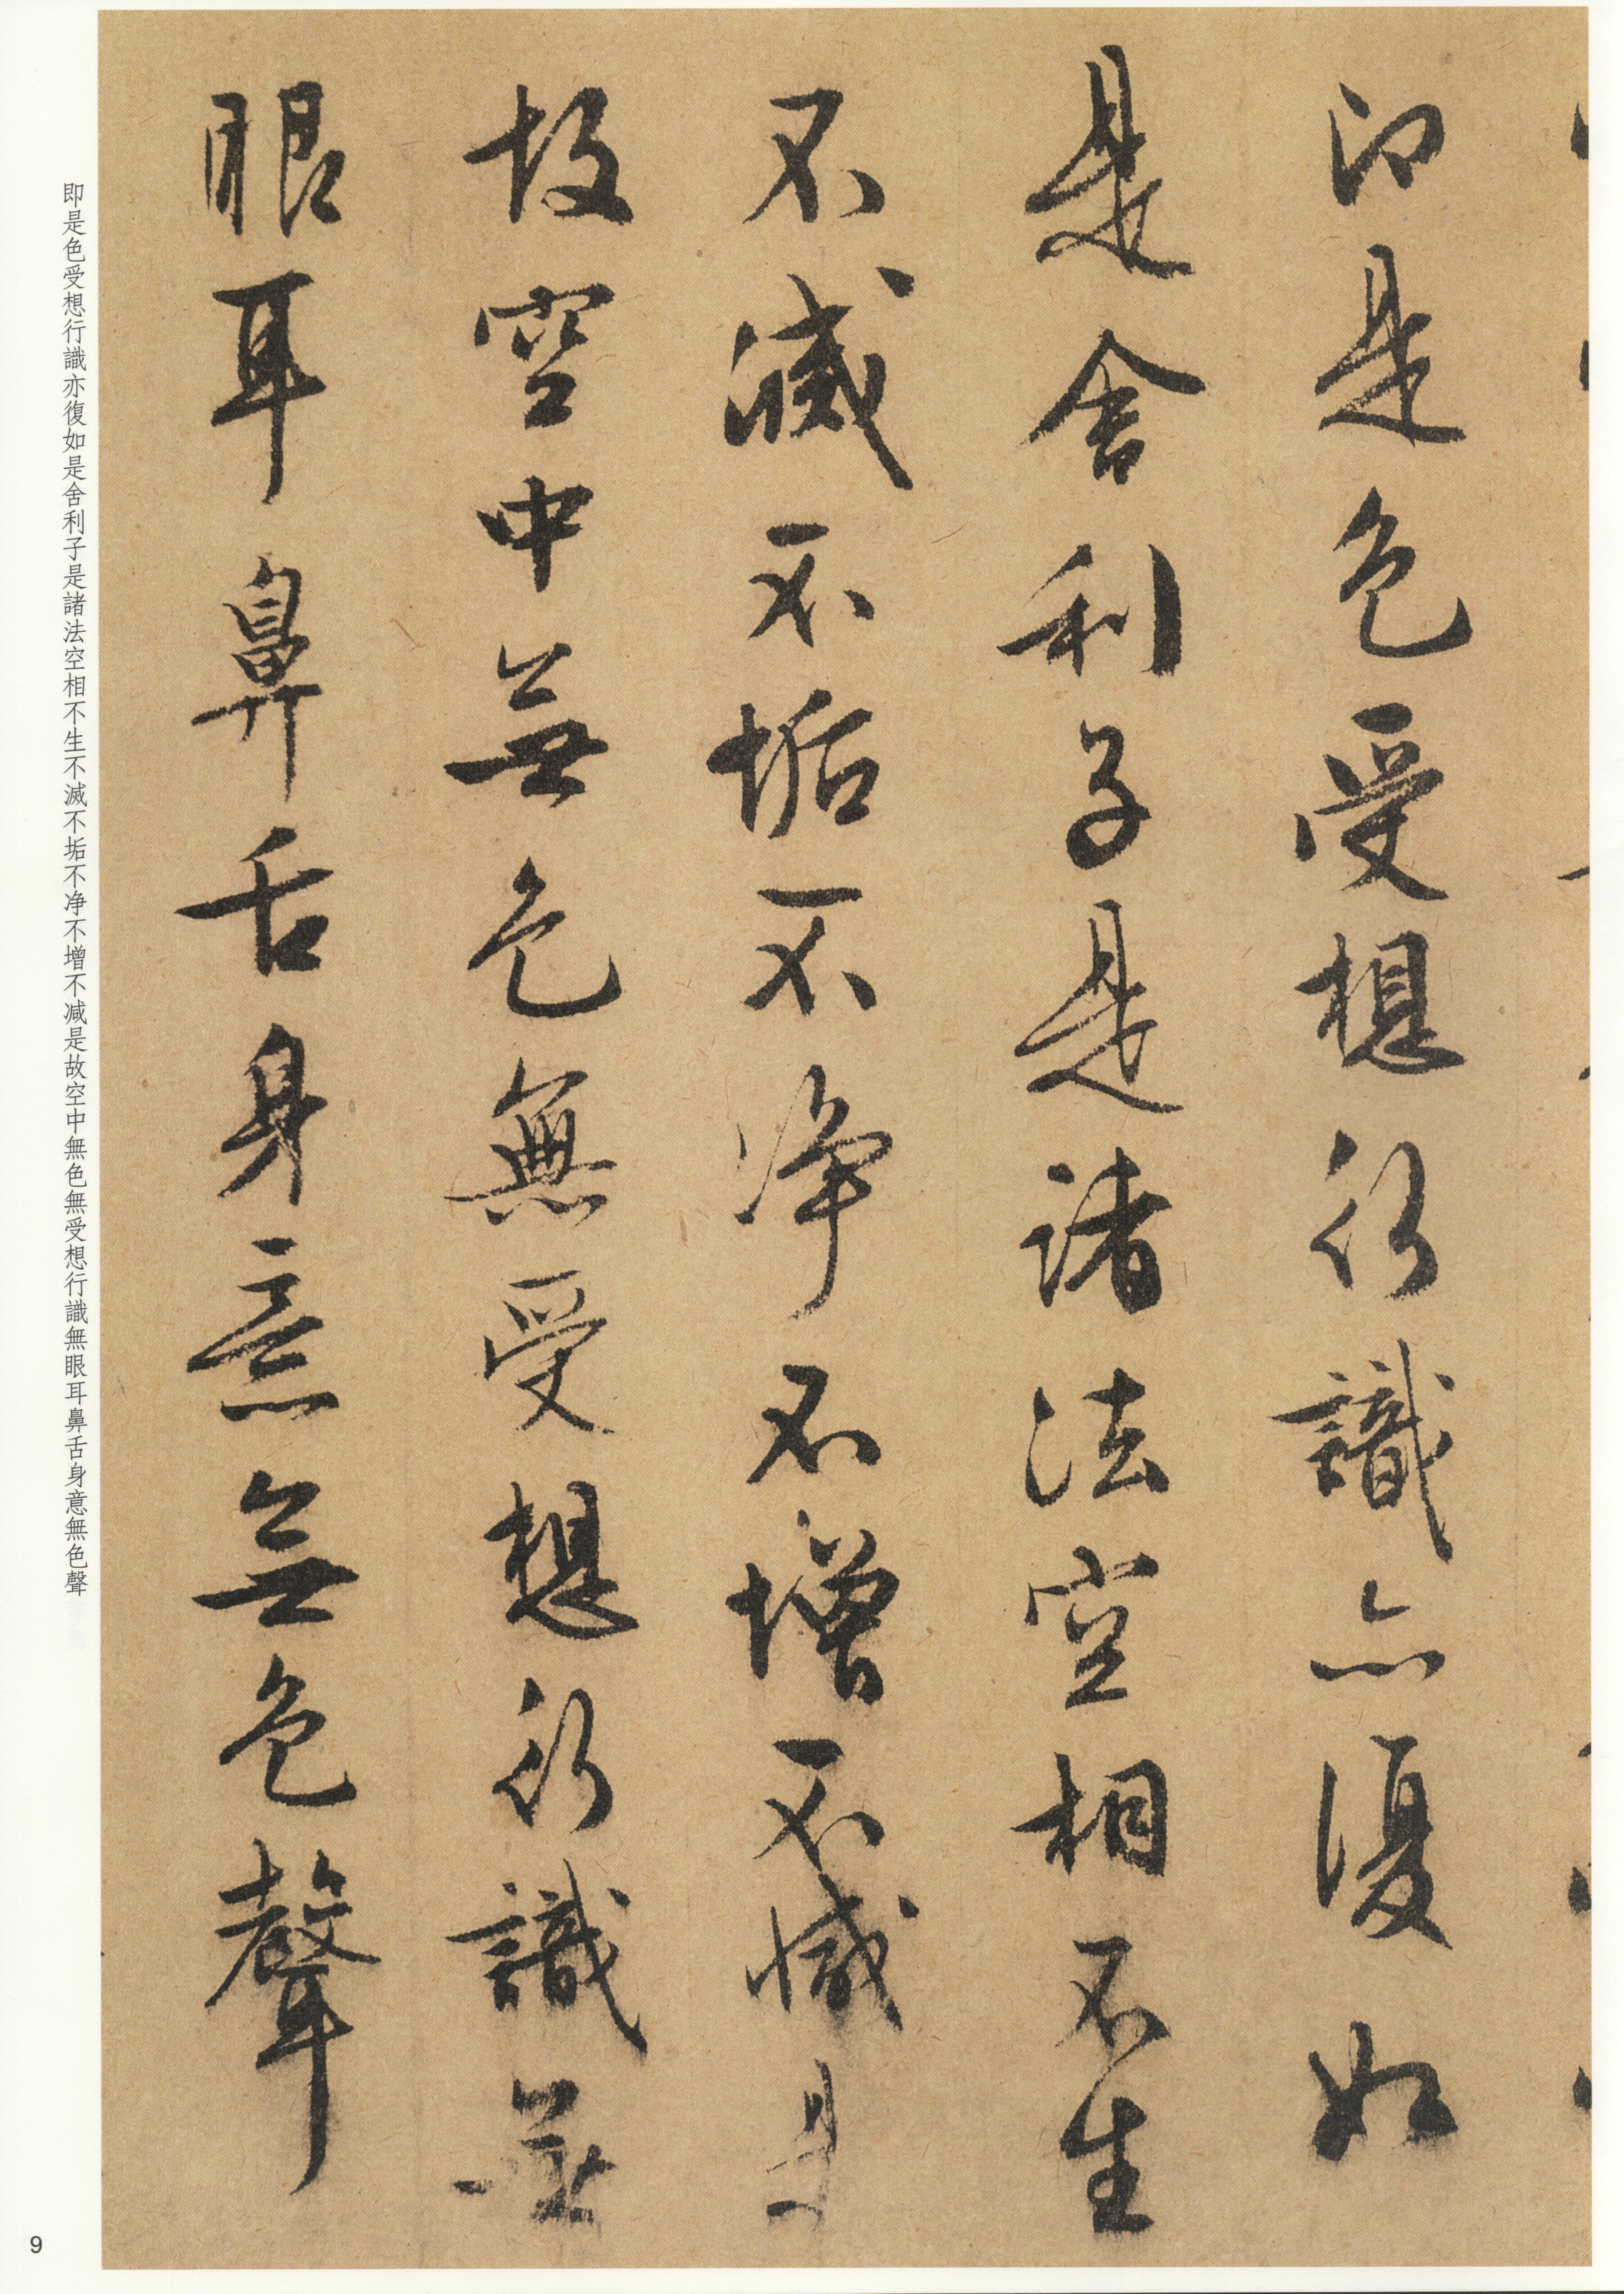 即是色受想行識亦復如
是舍利子是諸法空相不生
不滅不垢不净不增不减是
故空中無色無受想行識無
眼耳鼻舌身意無色聲
即是色受想行識亦復如是舍利子是諸法空相不生不滅不垢不净不增不减是故空中無色無受想行識無眼耳鼻舌身意無色聲
9